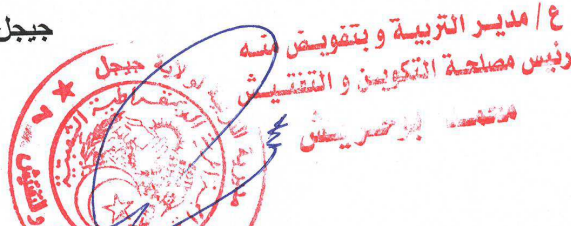 جيجل
ع / مدير التربية و بتفويض منه
رئيس مصلحة التكوين و التفتيش
محمد بوحريش
لولاية جيجل
و التفتيش